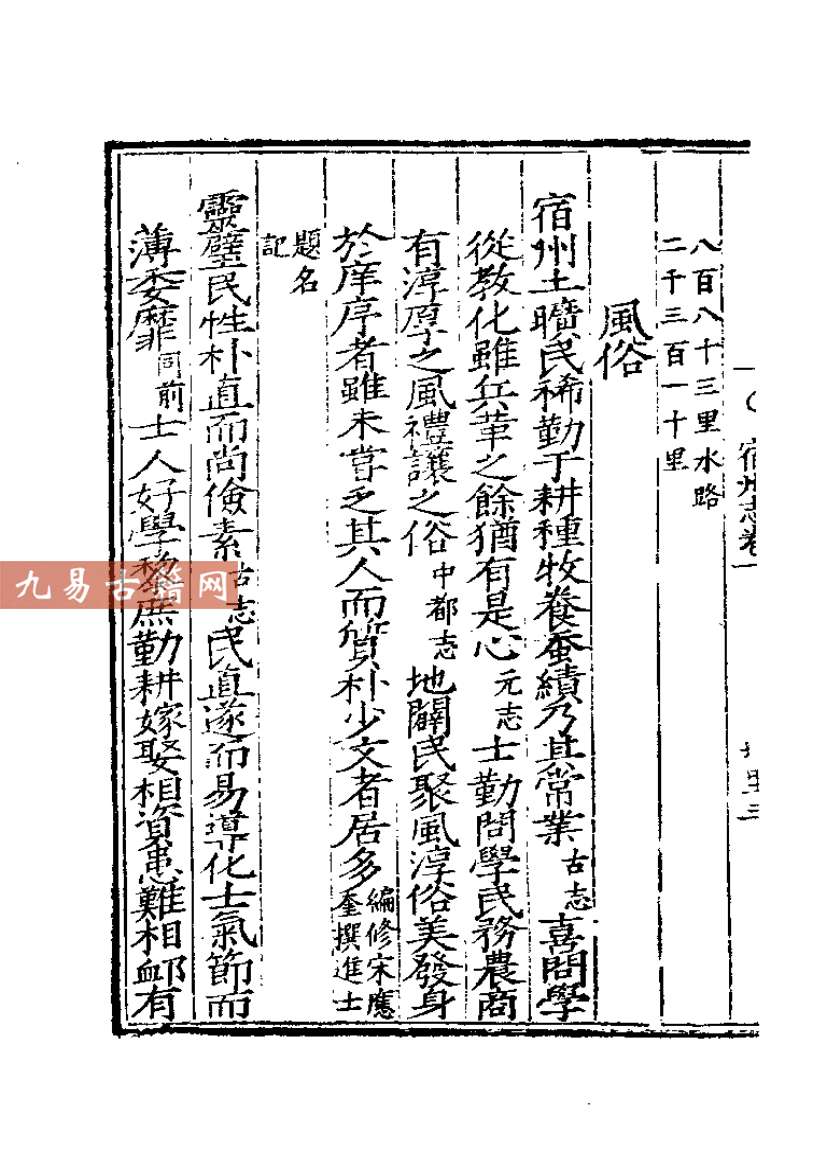 宿州志卷一
八百八十三里水路
二千三百一十里
風俗
宿州土曠民稀勤于耕種牧養蚕績乃其常業古志喜問學
從敎化雖兵革之餘猶有是心元志士勤問學民務農商
有淳厚之風禮讓之俗中都志地闢民聚風淳俗美發身
於庠序者雖未嘗乏其人而質朴少文者居多編修宋應
奎撰進士
題名
記
靈璧民性朴直而尚儉素古志民直遂而易導化士氣節而
薄委靡同前士人好學黎庶勤耕嫁娶相資患難相邺有
九易古籍网